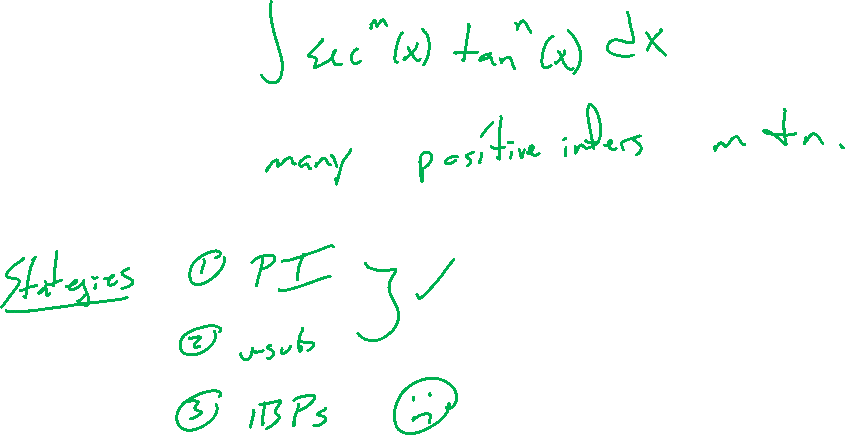 ∫ sec^m(x) tan^n(x) dx
many positive inters m + n.
Stategies ① PI
② usub
③ IBPs